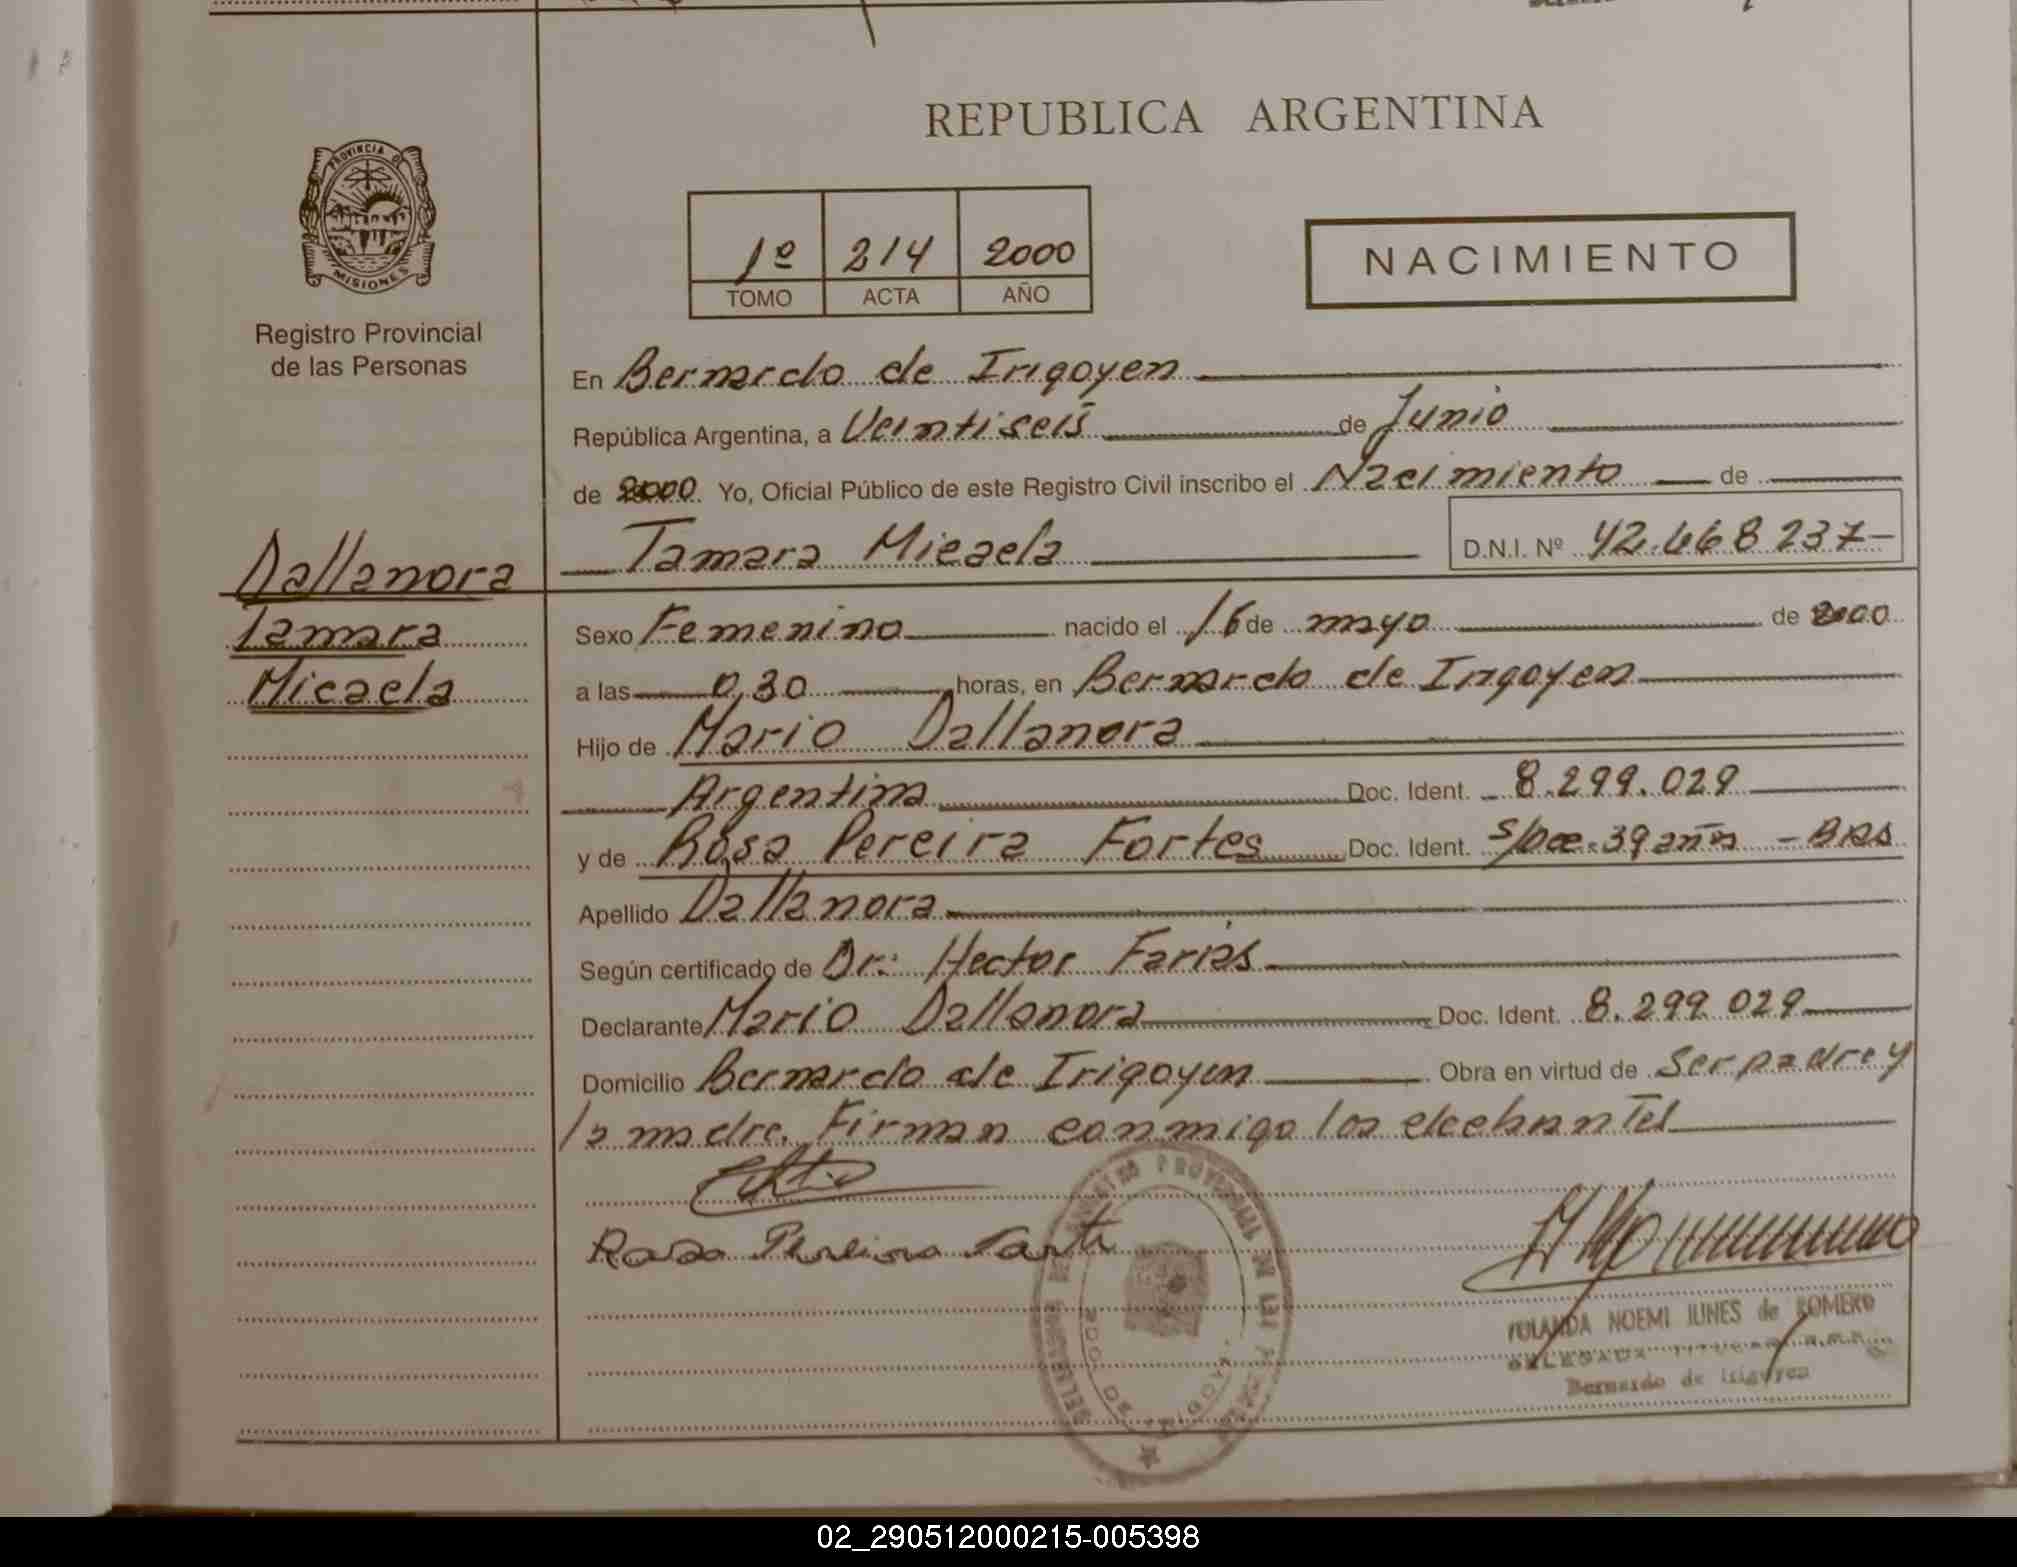 REPUBLICA ARGENTINA
PROVINCIA D
MISIONES
Registro Provincial
de las Personas
1º 214 2000
TOMO ACTA AÑO
NACIMIENTO
En Bernardo de Irigoyen
República Argentina, a Veintiseis de Junio
de 2000 Yo, Oficial Público de este Registro Civil inscribo el Nacimiento de
Tamara Micaela D.N.I. Nº 42.468 237-
Dallanora
Tamara
Micaela
Sexo Femenino nacido el 16 de mayo de 2000
a las 0,30 horas, en Bernardo de Irigoyen
Hijo de Mario Dallanora
Argentina Doc. Ident. 8.299.029
y de Rosa Pereira Fortes Doc. Ident. s/Doc. 39 años - BRS
Apellido Dallanora
Según certificado de Dr: Hector Farias
Declarante Mario Dallanora Doc. Ident. 8.299 029
Domicilio Bernardo de Irigoyen Obra en virtud de Ser padre y
la madre. Firman conmigo los
Rosa Pereira
YOLANDA NOEMI JUNES de ROMERO
Bernardo de Irigoyen
02_290512000215-005398